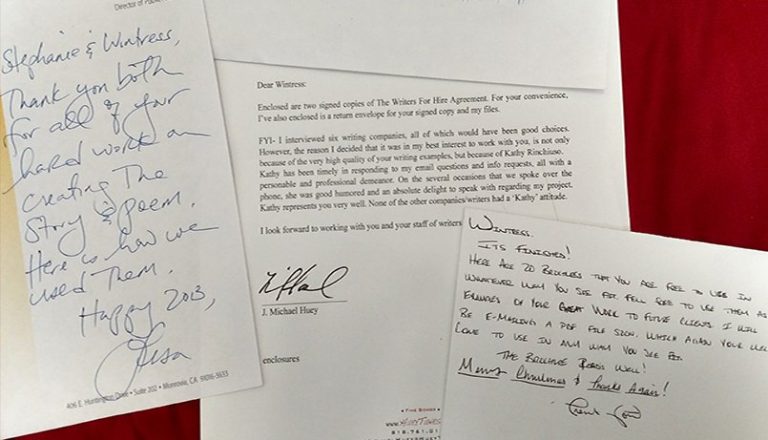 Director of
Stephanie & Wintress,
Thank you both
for all of your
hard work on
creating The
Story & Poem.
Here is how we
used Them.
Happy 2013,
Lisa
406 E. Huntington Drive • Suite 202 • Monrovia, CA 91016-3633
Dear Wintress:
Enclosed are two signed copies of The Writers For Hire Agreement. For your convenience,
I've also enclosed is a return envelope for your signed copy and my files.
FYI- I interviewed six writing companies, all of which would have been good choices.
However, the reason I decided that it was in my best interest to work with you, is not only
because of the very high quality of your writing examples, but because of Kathy Rinchiuso.
Kathy has been timely in responding to my email questions and info requests, all with a
personable and professional demeanor. On the several occasions that we spoke over the
phone, she was good humored and an absolute delight to speak with regarding my project.
Kathy represents you very well. None of the other companies/writers had a 'Kathy' attitude.
I look forward to working with you and your staff of writers
J. Michael Huey
enclosures
• Fine Bonsai •
Wintress.
Its Finished!
Here Are 20 Brochures that You are free to use in
Whatever way You See fit. Fell free to use them as
Examples of Your Great Work to future clients. I will
Be E-Mailing a PDF File soon. Which again Your Wel
Come to use in any way You See Fit.
The Brochure Reads Well!
Merry Christmas & Thanks Again!